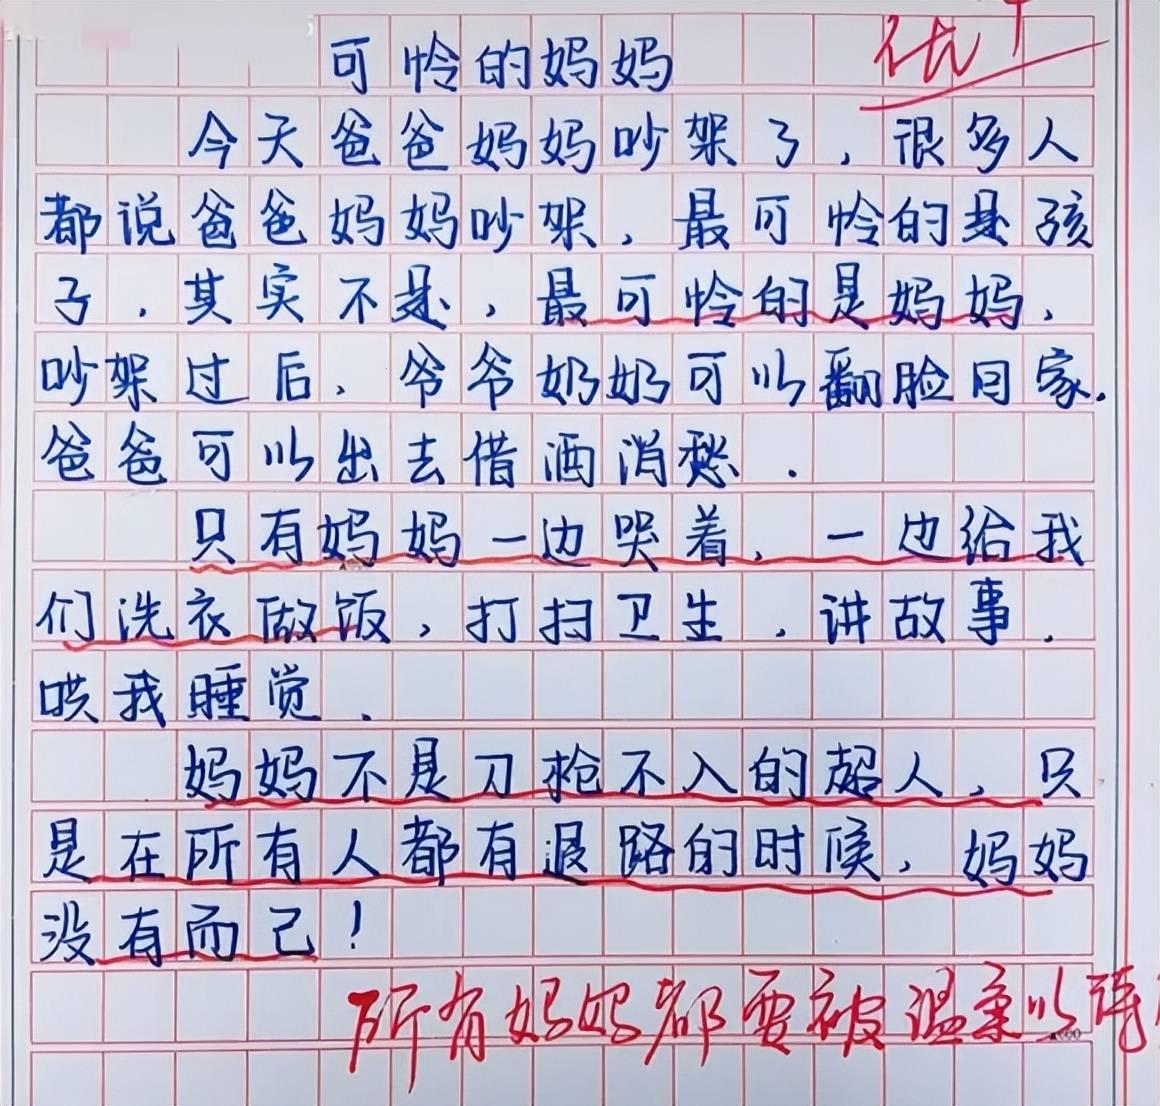 优+
可怜的妈妈
今天爸爸妈妈吵架了,很多人
都说爸爸妈妈吵架,最可怜的是孩
子.其实不是,最可怜的是妈妈,
吵架过后,爷爷奶奶可以翻脸回家.
爸爸可以出去借酒消愁.
只有妈妈一边哭着,一边给我
们洗衣做饭,打扫卫生,讲故事.
哄我睡觉.
妈妈不是刀枪不入的超人,只
是在所有人都有退路的时候,妈妈
没有而己!
所有妈妈都要被温柔以待